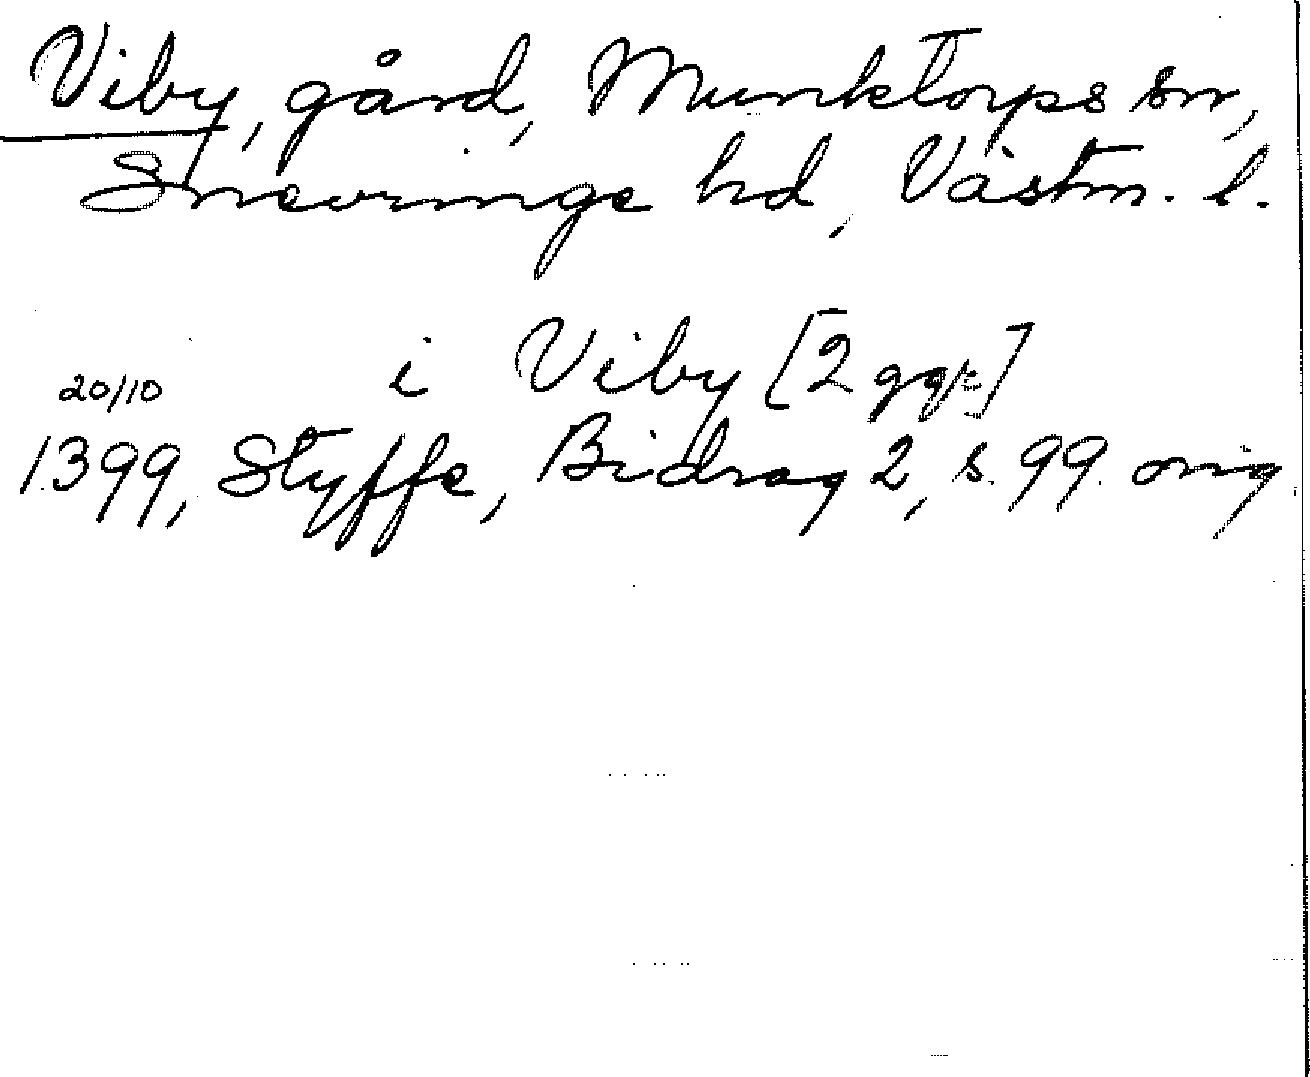 Viby, gård, Munktorps sn,
Snevringe hd, Västm. l.
i Viby [2 ggr]
20/10
1399, Styffe, Bidrag 2, s. 99. orig